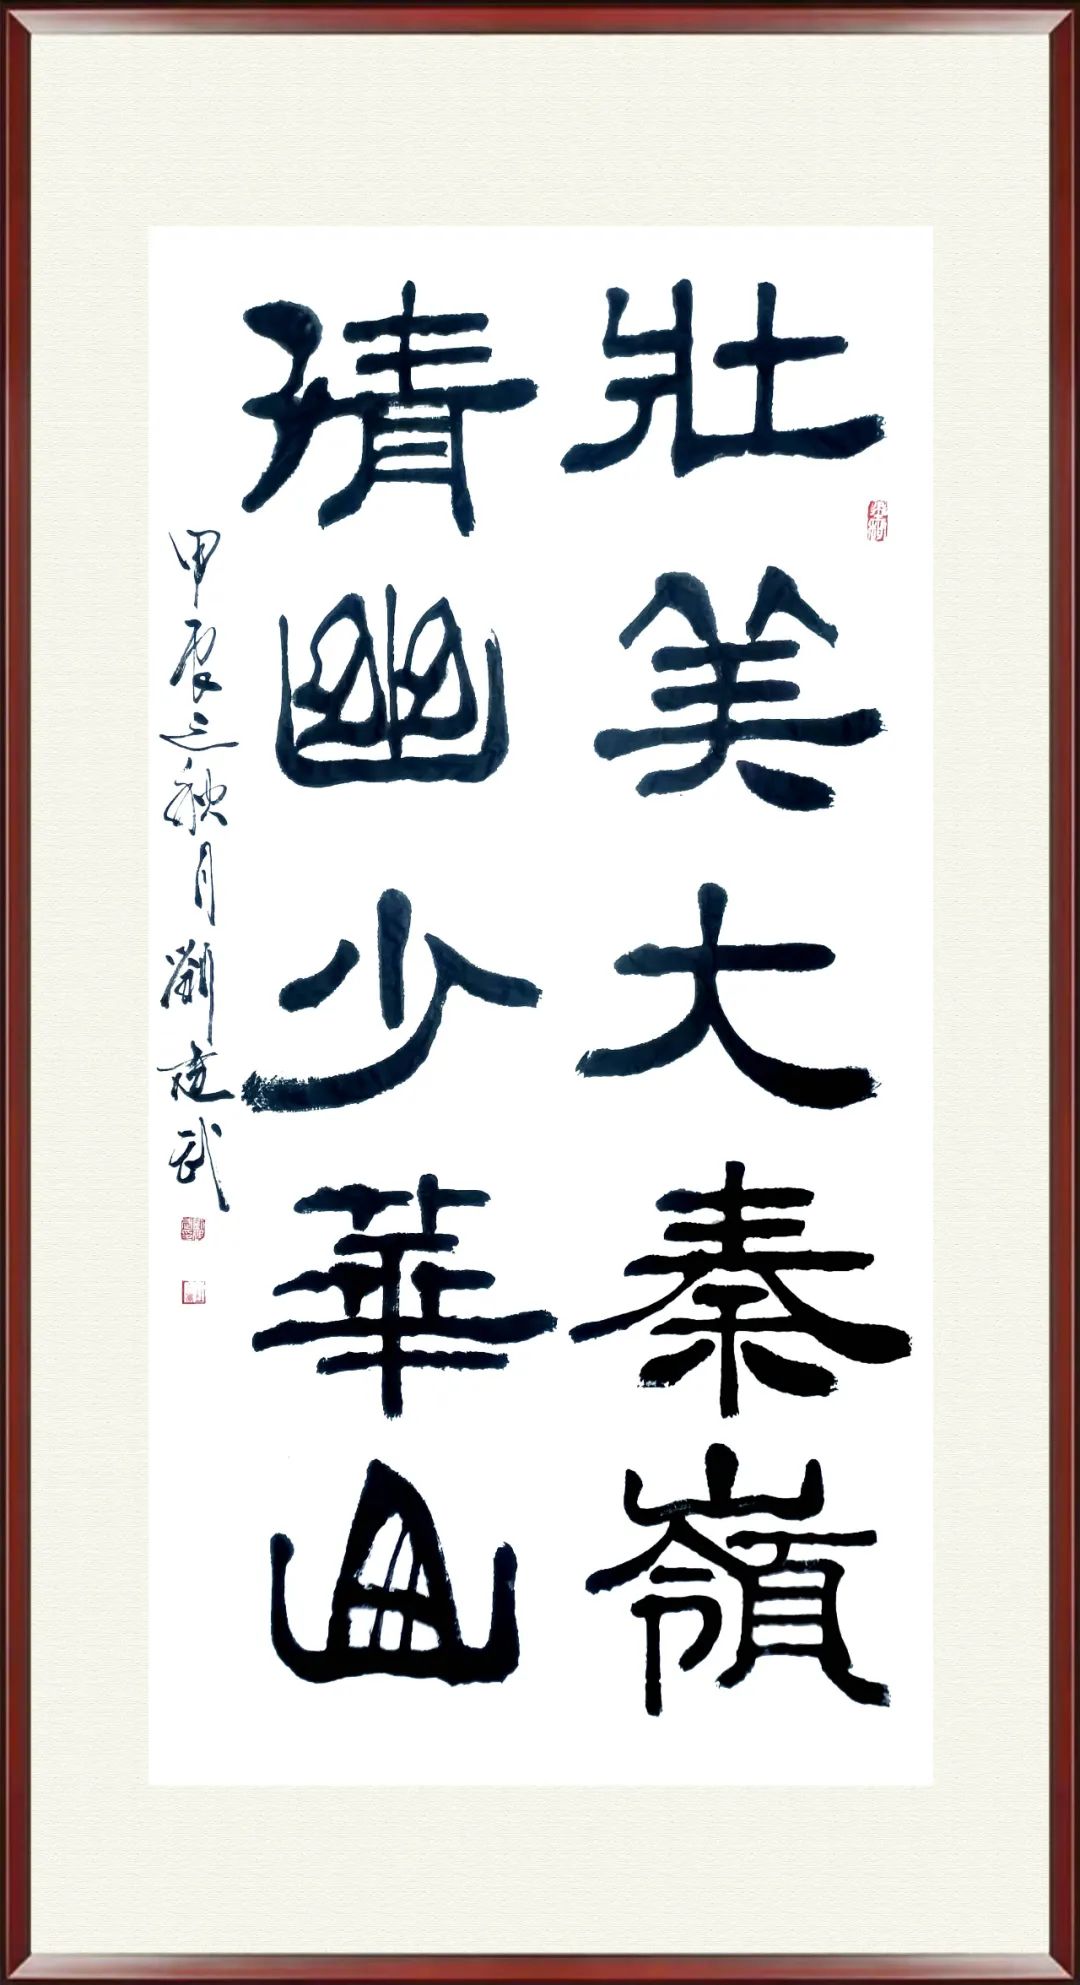 壯美大秦嶺
清幽少華山
甲辰之秋月劉建武